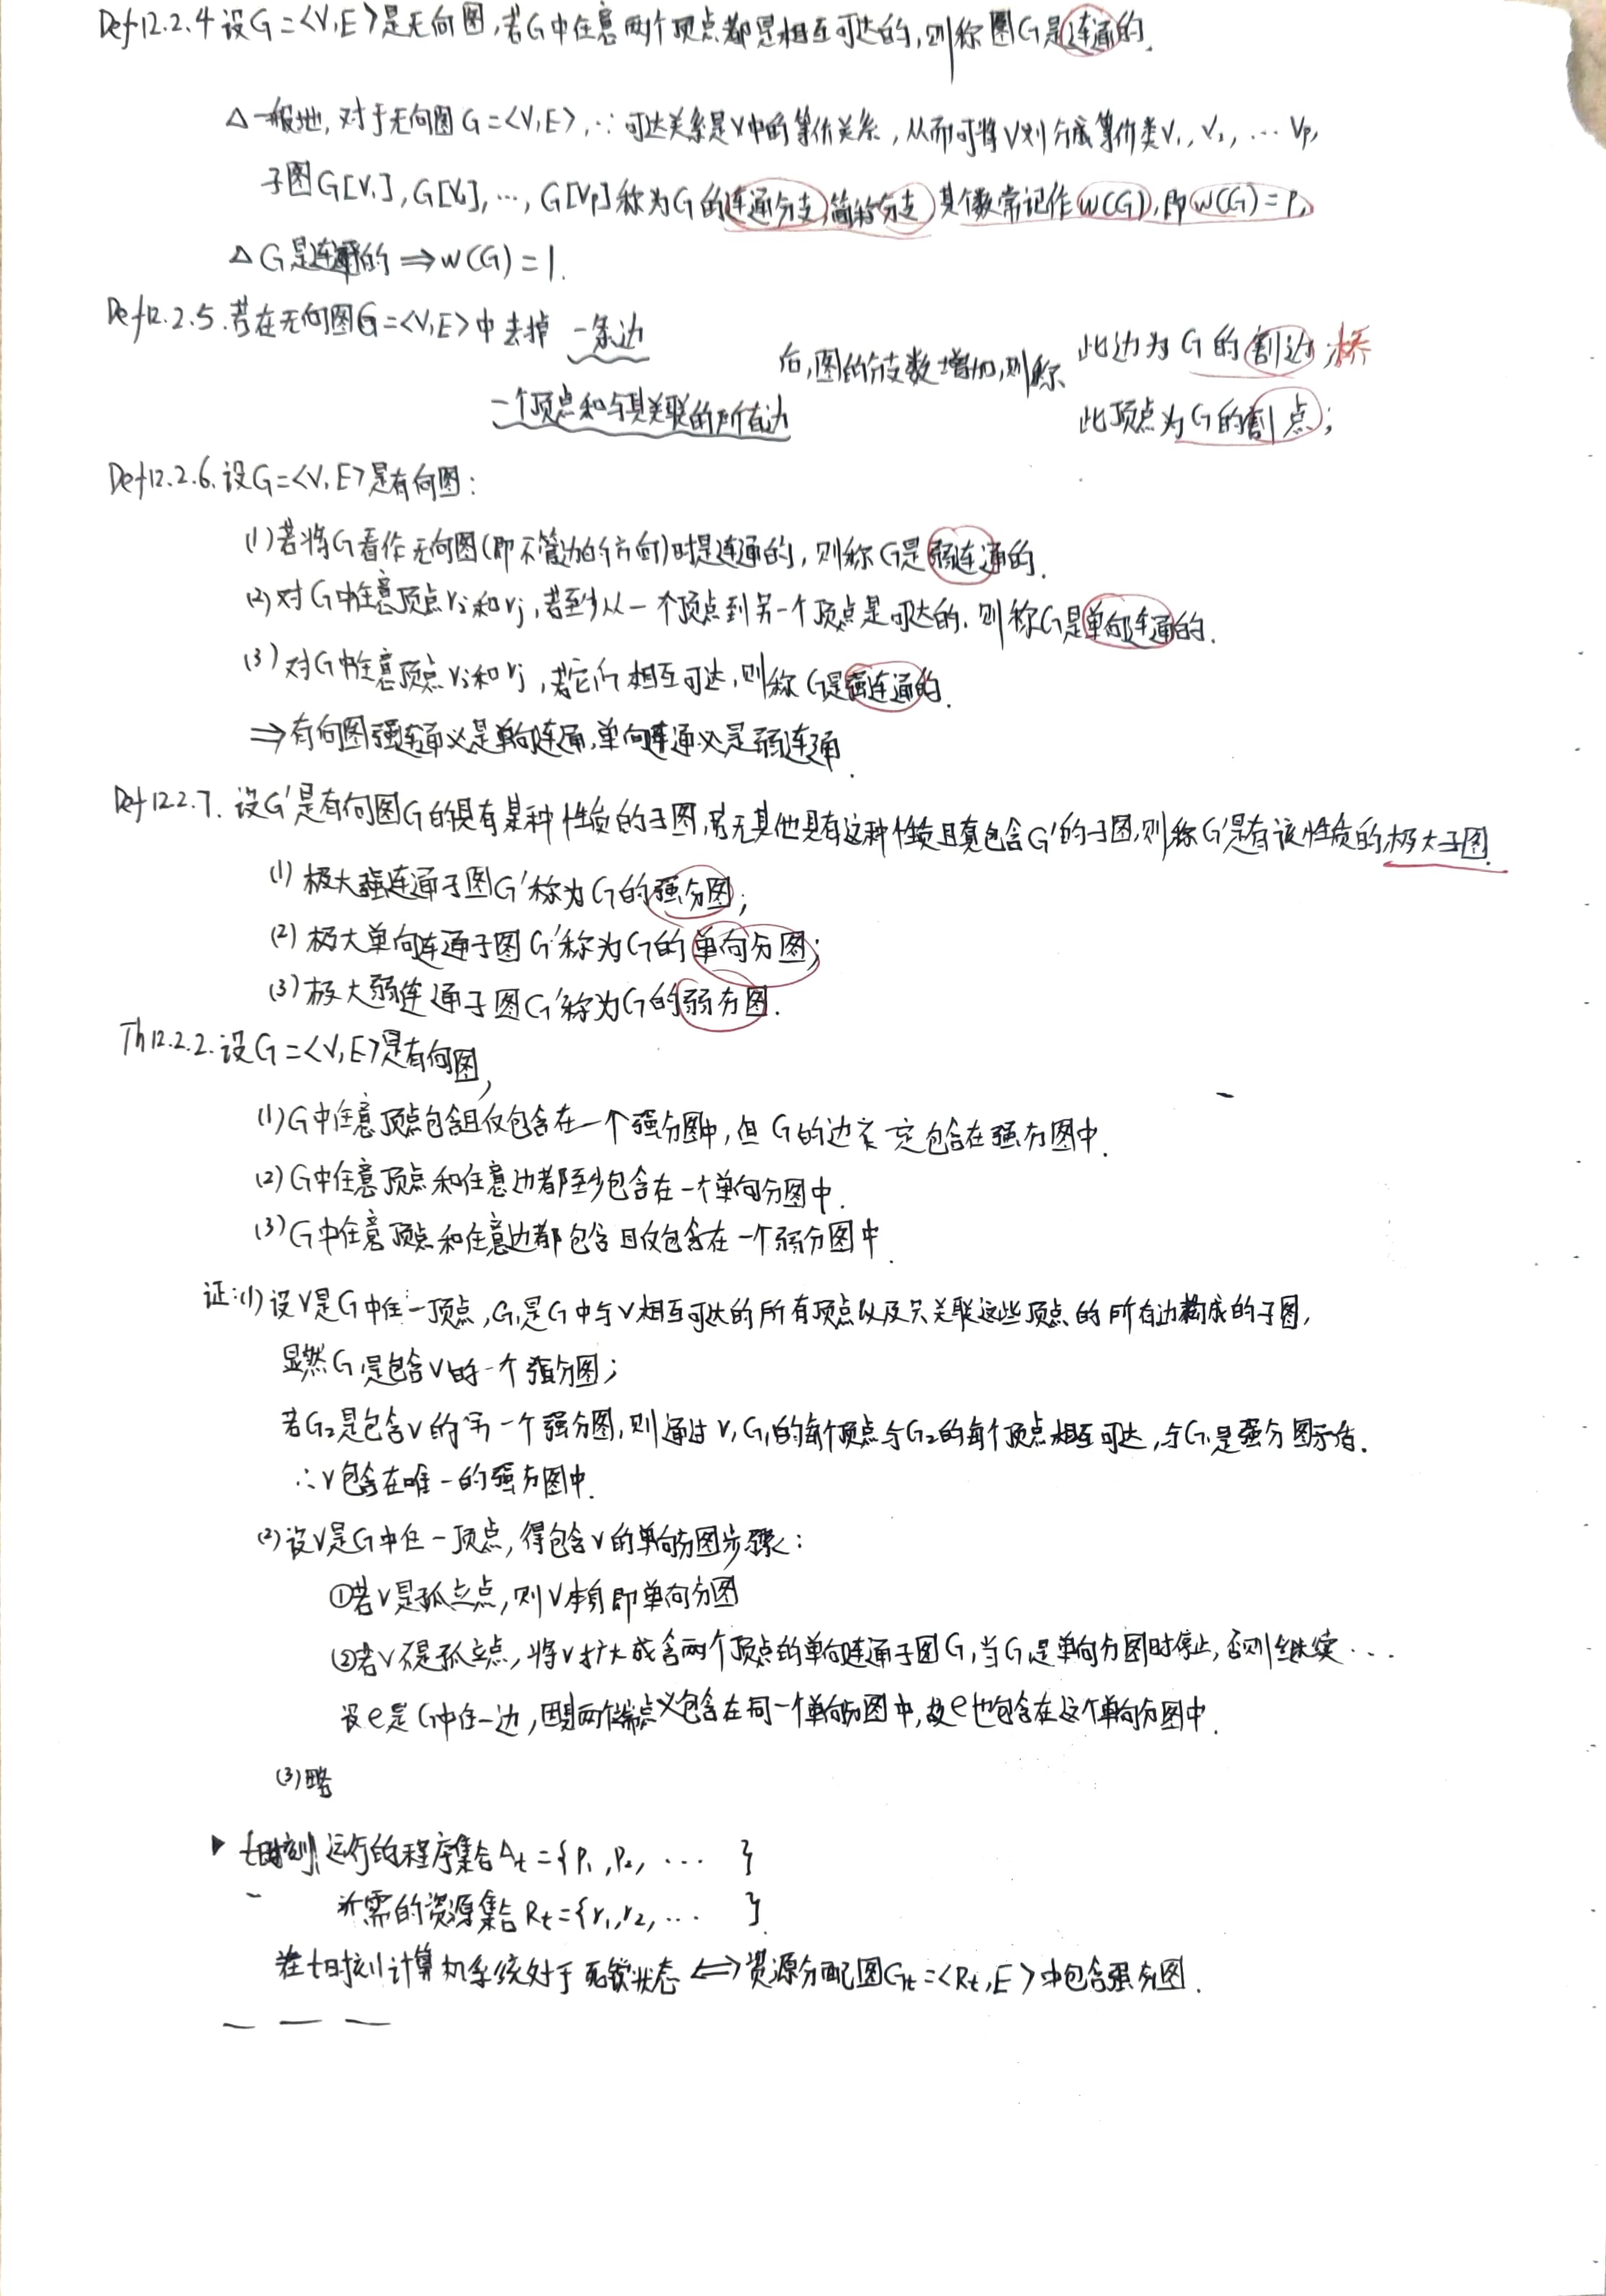 Def12.2.4 设G=<V,E>是无向图,若G中任意两个顶点都是相互可达的,则称图G是连通的.
△一般地,对于无向图G=<V,E>,∵可达关系是V中的等价关系,从而可将V划分成等价类V₁,V₂,…Vp,
子图G[V₁],G[V₂],…,G[Vp]称为G的连通分支,简称分支,其个数常记作w(G),即w(G)=p.
△G是连通的⇒w(G)=1.
Def12.2.5.若在无向图G=<V,E>中去掉 一条边
后,图的分支数增加,则称 此边为G的割边;桥
一个顶点和与其关联的所有边 此顶点为G的割点;
Def12.2.6.设G=<V,E>是有向图:
(1)若将G看作无向图(即不管边的方向)时是连通的,则称G是弱连通的.
(2)对G中任意顶点vi和vj,若至少从一个顶点到另一个顶点是可达的,则称G是单向连通的.
(3)对G中任意顶点vi和vj,若它们相互可达,则称G是强连通的.
⇒有向图强连通必是单向连通,单向连通必是弱连通.
Def12.2.7.设G'是有向图G的具有某种性质的子图,若无其他具有这种性质且真包含G'的子图,则称G'是有该性质的极大子图.
(1)极大强连通子图G'称为G的强分图;
(2)极大单向连通子图G'称为G的单向分图;
(3)极大弱连通子图G'称为G的弱分图.
Th12.2.2.设G=<V,E>是有向图,
(1)G中任意顶点包含且仅包含在一个强分图中,但G的边不一定包含在强分图中.
(2)G中任意顶点和任意边都至少包含在一个单向分图中.
(3)G中任意顶点和任意边都包含且仅包含在一个弱分图中.
证:(1)设v是G中任一顶点,G₁是G中与v相互可达的所有顶点以及只关联这些顶点的所有边构成的子图,
显然G₁是包含v的一个强分图;
若G₂是包含v的另一个强分图,则通过v,G₁的每个顶点与G₂的每个顶点相互可达,与G₁是强分图矛盾.
∴v包含在唯一的强分图中.
(2)设v是G中任一顶点,得包含v的单向分图步骤:
①若v是孤立点,则v本身即单向分图
②若v不是孤立点,将v扩大成含两个顶点的单向连通子图G₁,当G₁是单向分图时停止,否则继续…
设e是G中任一边,因其两个端点必包含在同一个单向分图中,故e也包含在这个单向分图中.
(3)略
▶ t时刻运行的程序集合At={p₁,p₂,… }
所需的资源集合Rt={r₁,r₂,… }.
在t时刻计算机系统处于死锁状态⇔资源分配图Gt=<Rt,E>中包含强分图.